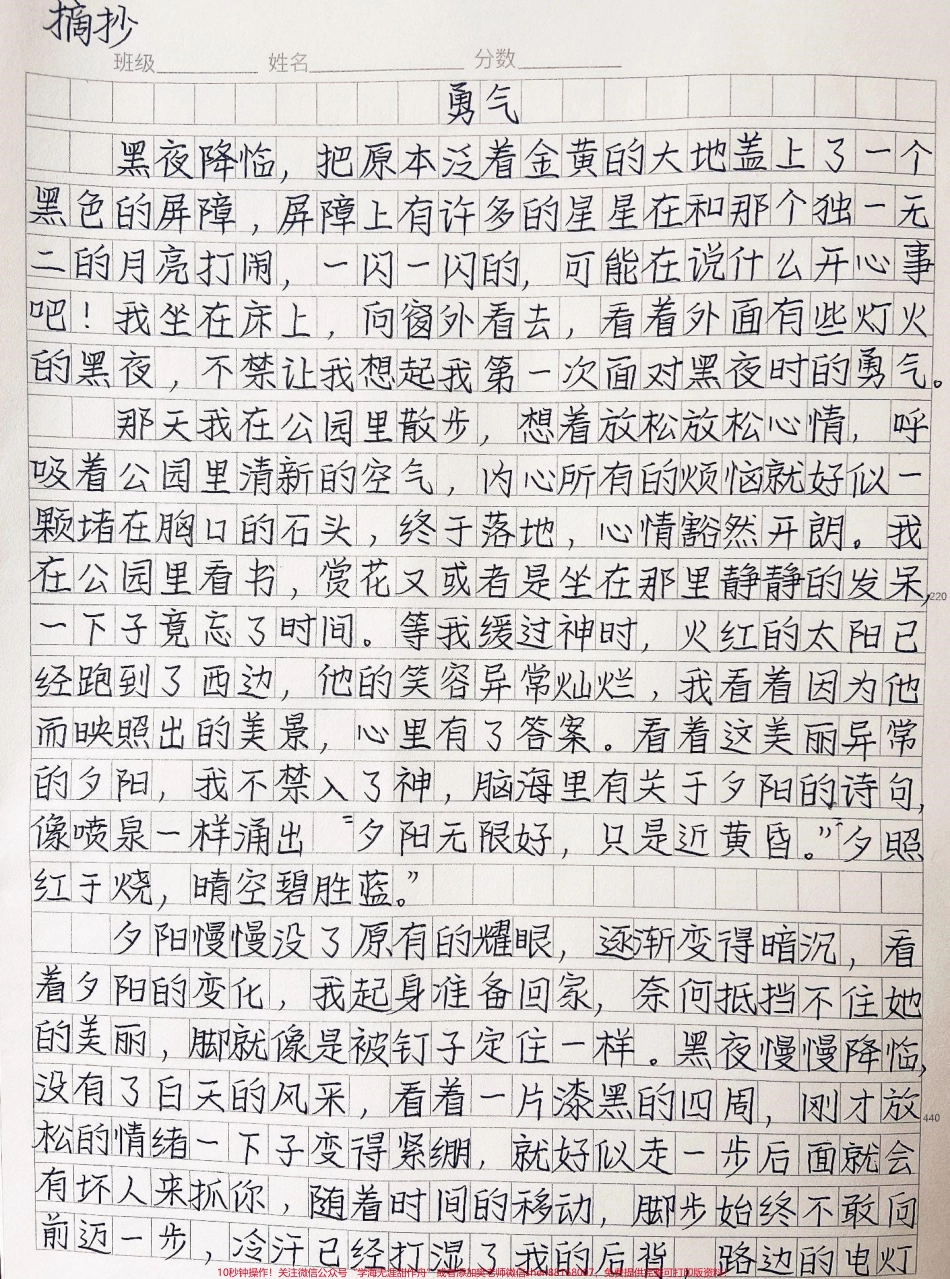 摘抄
班级 姓名 分数
勇气
黑夜降临，把原本泛着金黄的大地盖上了一个
黑色的屏障，屏障上有许多的星星在和那个独一无
二的月亮打闹，一闪一闪的，可能在说什么开心事
吧！我坐在床上，向窗外看去，看着外面有些灯火
的黑夜，不禁让我想起我第一次面对黑夜时的勇气。
那天我在公园里散步，想着放松放松心情，呼
吸着公园里清新的空气，内心所有的烦恼就好似一
颗堵在胸口的石头，终于落地，心情豁然开朗。我
在公园里看书，赏花又或者是坐在那里静静的发呆，
220
一下子竟忘了时间。等我缓过神时，火红的太阳已
经跑到了西边，他的笑容异常灿烂，我看着因为他
而映照出的美景，心里有了答案。看着这美丽异常
的夕阳，我不禁入了神，脑海里有关于夕阳的诗句，
像喷泉一样涌出“夕阳无限好，只是近黄昏。”“夕照
红于烧，晴空碧胜蓝。”
夕阳慢慢没了原有的耀眼，逐渐变得暗沉，看
着夕阳的变化，我起身准备回家，奈何抵挡不住她
的美丽，脚就像是被钉子定住一样。黑夜慢慢降临，
没有了白天的风采，看着一片漆黑的四周，刚才放
440
松的情绪一下子变得紧绷，就好似走一步后面就会
有坏人来抓你，随着时间的移动，脚步始终不敢向
前迈一步，冷汗已经打湿了我的后背 路边的电灯
10秒钟操作！关注微信公众号“学海无涯甜作舟”或者添加吴老师微信